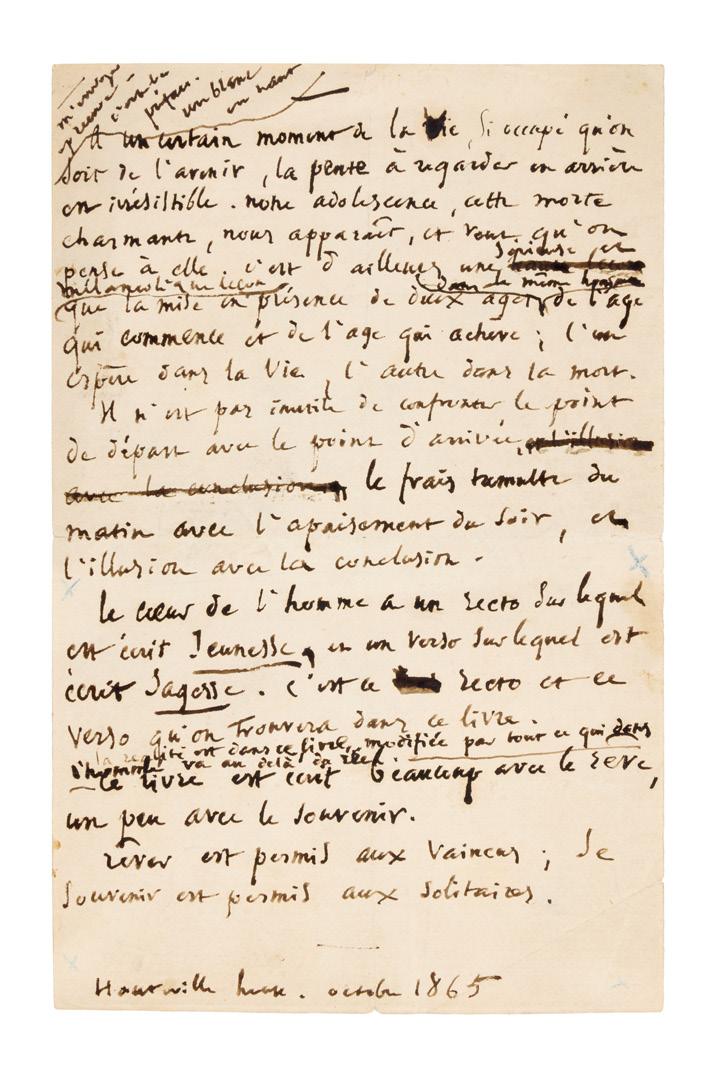 c'est la
préface.
un blanc
en haut
A un certain moment de la vie, si occupé qu'on
soit de l'avenir, la pente à regarder en arrière
est irrésistible. notre adolescence, cette morte
charmante, nous apparaît, et veut qu'on
pense à elle. c'est d'ailleurs une sérieuse et
mélancolique leçon dans le même homme
que la mise en présence de deux ages, de l'age
qui commence et de l'age qui achève ; l'un
espère dans la vie, l'autre dans la mort.
Il n'est pas inutile de confronter le point
de départ avec le point d'arrivée, et l'illusion
avec la conclusion, le frais tumulte du
matin avec l'apaisement du soir, et
l'illusion avec la conclusion.
le cœur de l'homme a un recto sur lequel
est écrit Jeunesse, et un verso sur lequel est
écrit Sagesse. C'est ce recto et ce
verso qu'on trouvera dans ce livre.
la réalité est dans ce livre, modifiée par tout ce qui dans
l'homme va au delà du réel
Ce livre est écrit beaucoup avec le rêve,
un peu avec le souvenir.
rêver est permis aux vaincus ; se
souvenir est permis aux solitaires.
Hauteville house. octobre 1865